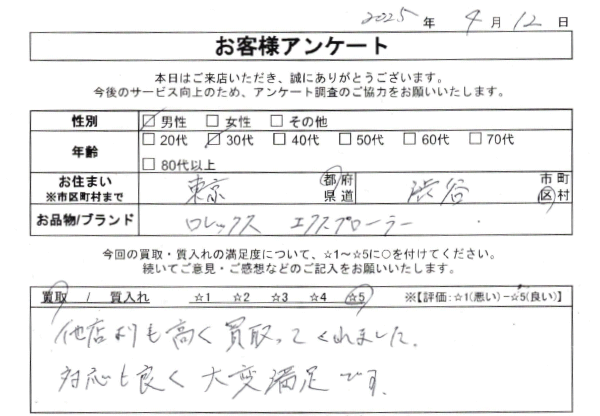 2025 年 4 月 12 日
お客様アンケート
本日はご来店いただき、誠にありがとうございます。
今後のサービス向上のため、アンケート調査のご協力をお願いいたします。
性別 ☑男性 □女性 □その他
年齢 □20代 ☑30代 □40代 □50代 □60代 □70代
□80代以上
お住まい ※市区町村まで 東京 都府県道 渋谷 市町区村
お品物/ブランド ロレックス エクスプローラー
今回の買取・質入れの満足度について、☆1～☆5に○を付けてください。
続いてご意見・ご感想などのご記入をお願いいたします。
買取 / 質入れ ☆1 ☆2 ☆3 ☆4 ☆5 ※【評価:☆1(悪い)−☆5(良い)】
他店よりも高く買取ってくれました.
対応も良く大変満足です.